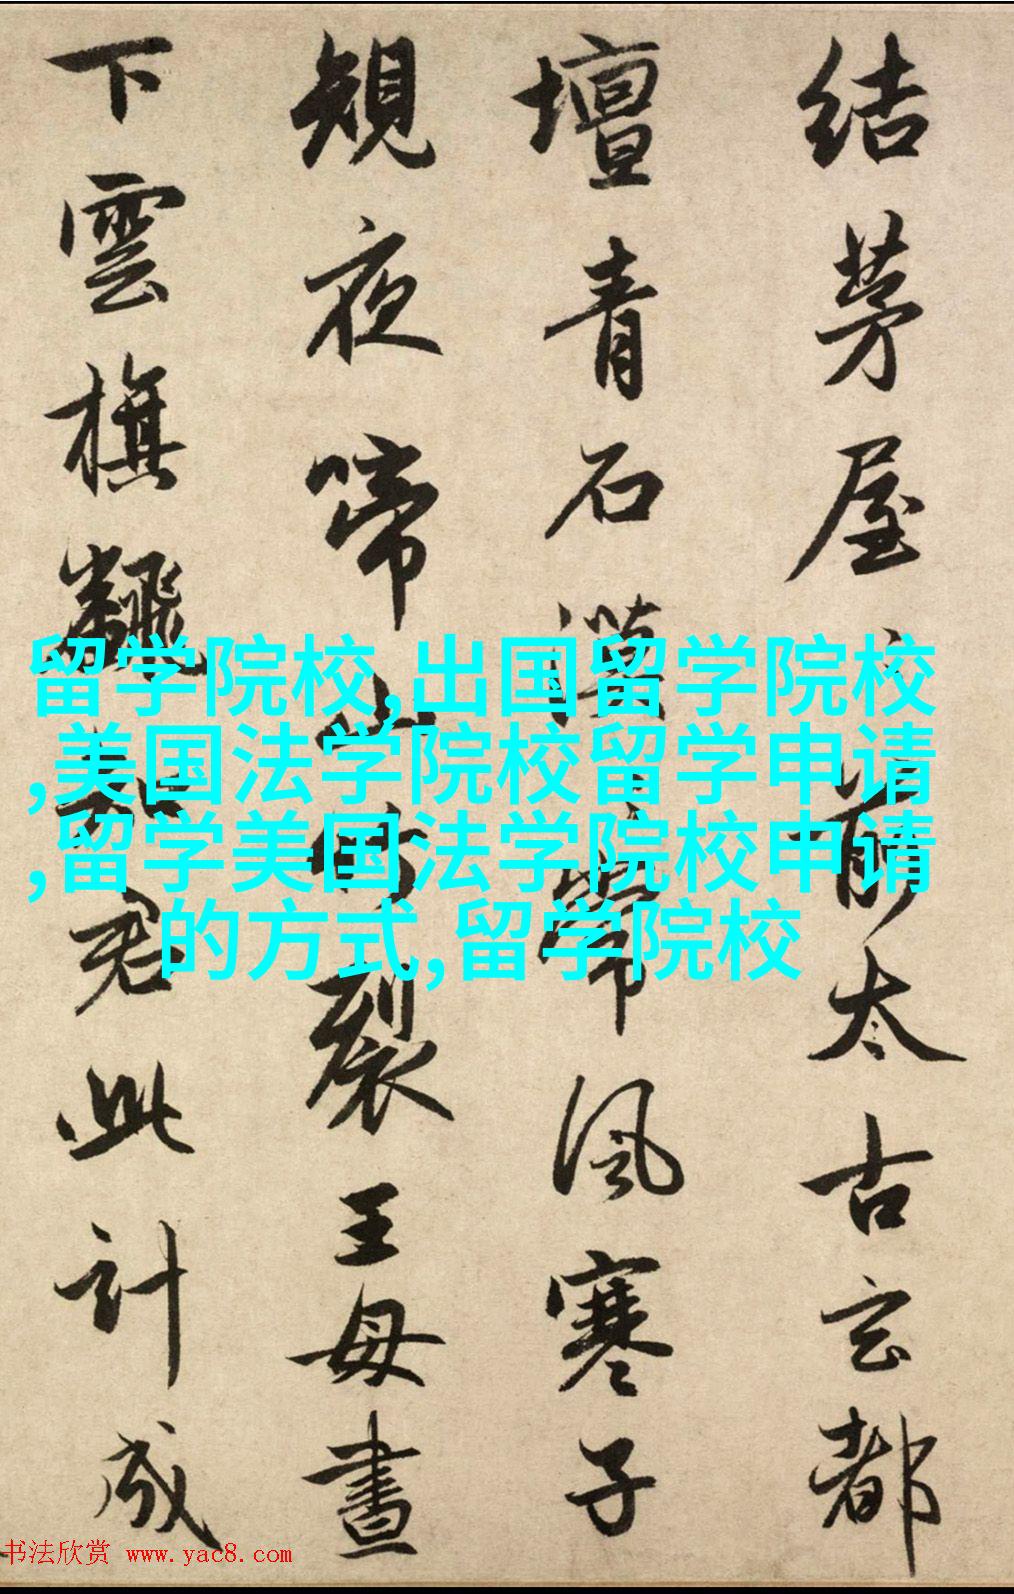 結茅屋〻前太古玄都
壇青石漠〻常風寒子
規夜啼山竹裂王母晝
下雲旗飜知君此計成
留学院校,出国留学院校
,美国法学院校留学申请
,留学美国法学院校申请
的方式,留学院校
书法欣赏 www.yac8.com